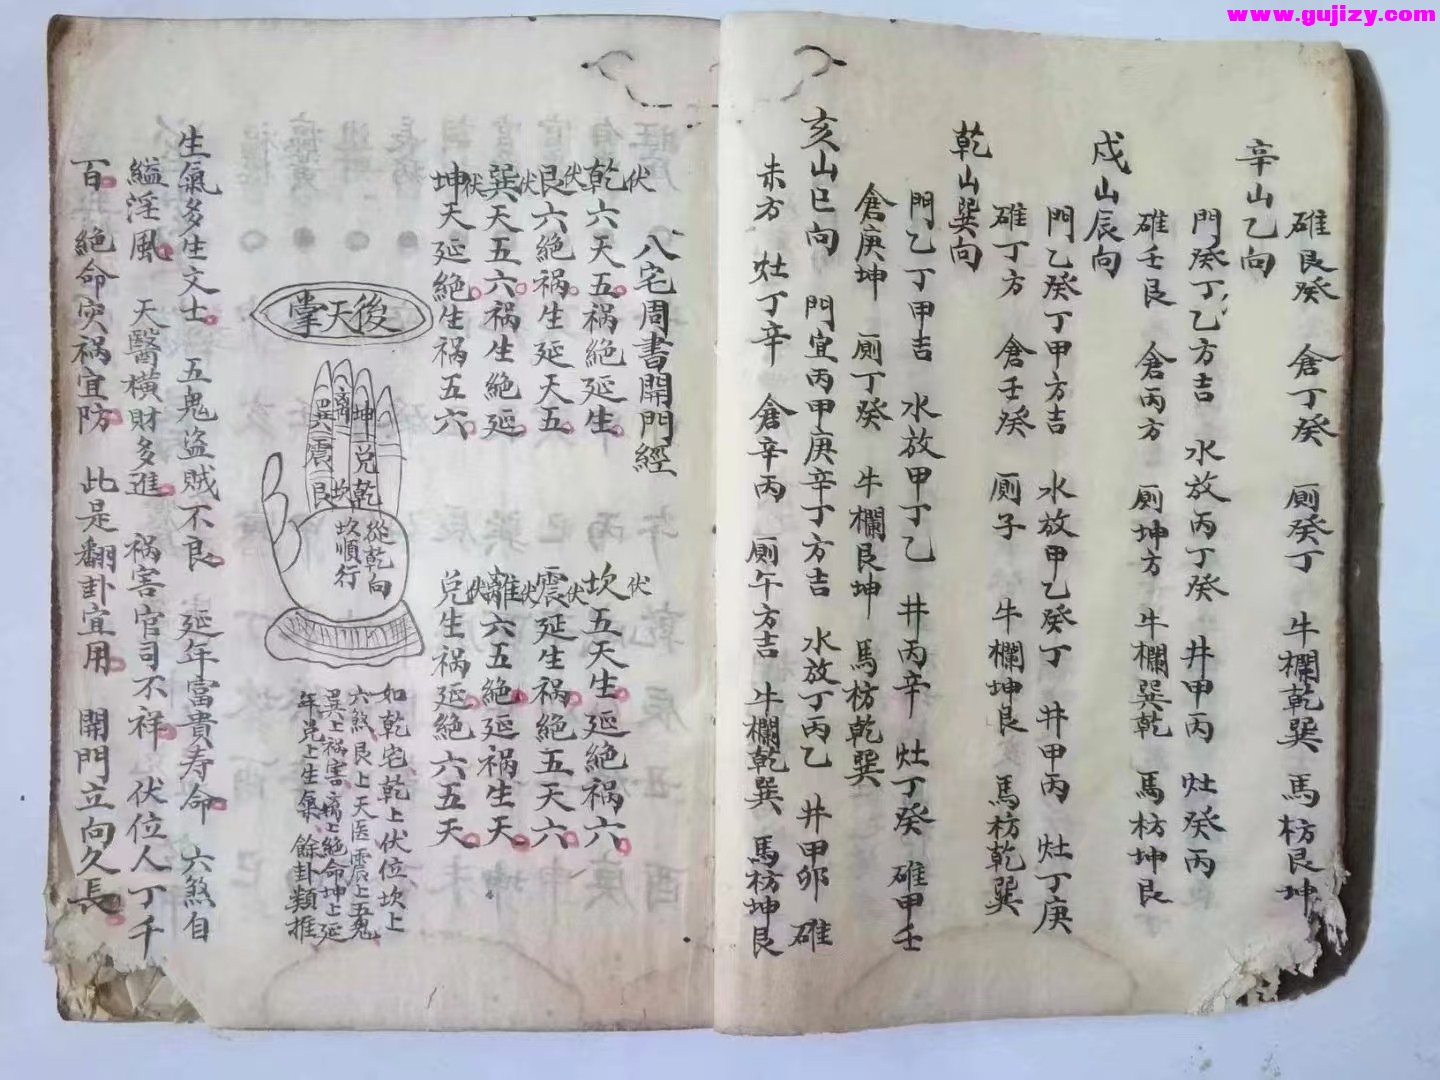 www.gujizy.com
碓艮癸 倉丁癸 廁癸丁 牛欄乾巽 馬枋艮坤
辛山乙向
門癸丁乙方吉 水放丙丁癸 井甲丙 灶癸丙
碓壬艮 倉丙方 廁坤方 牛欄巽乾 馬枋坤艮
戌山辰向
門乙癸丁甲方吉 水放甲乙癸丁 井甲丙 灶丁庚
碓丁方 倉壬癸 廁子 牛欄坤艮 馬枋乾巽
乾山巽向
門乙丁甲吉 水放甲丁乙 井丙辛 灶丁癸 碓甲壬
倉庚坤 廁丁癸 牛欄艮坤 馬枋乾巽
亥山巳向 門宜丙甲庚辛丁方吉 水放丁丙乙 井甲卯 碓
未方 灶丁辛 倉辛丙 廁午方吉 牛欄乾巽 馬枋坤艮
八宅周書開門經
伏 伏
乾六天五禍絕延生 坎五天生延絕禍六
伏 伏
艮六絕禍生延天五 震延生禍絕五天六
伏 伏
巽天五六禍生絕延 離六五絕延禍生天
伏 伏
坤天延絕生禍五六 兌生禍延絕六五天
後天掌
坤兌乾
離坎
巽震艮
從乾向
坎順行
如乾宅乾上伏位坎上
六煞艮上天医震上五鬼
巽上禍害离上絕命坤上延
年兌上生氣餘卦類推
生氣多生文士 五鬼盜賊不良 延年富貴寿命 六煞自
縊淫風 天醫橫財多進 禍害官司不祥 伏位人丁千
百 絕命灾禍宜防 此是翻卦宜用 開門立向久長